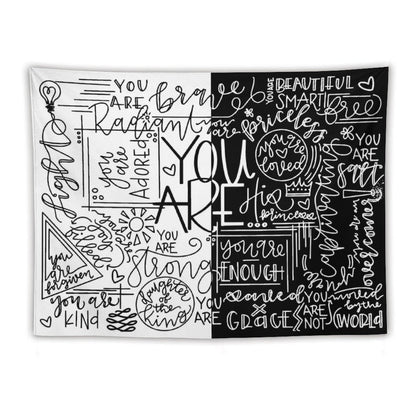 YOU ARE
brave
YOU ARE
BEAUTIFUL
SMART
free
Radiant
you are
priceless
light
you are
ADORED
YOU
ARE
you are
loved
YOU ARE
SAFE
His
princess
captivating
you are
forgiven
YOU ARE
Strong
you are
ENOUGH
you are an
overcomer
you are
KIND
daughter
of the
king
YOU ARE
saved
YOU
ARE
GRACE
YOU
ARE
NOT
moved
by the
WORLD